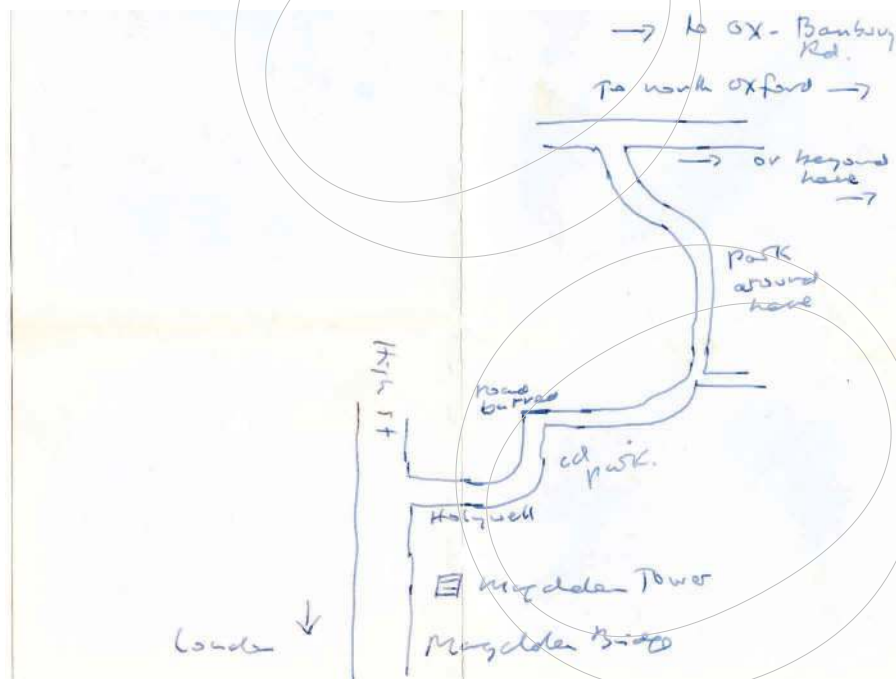 → to OX - Banbury
Rd.
To north Oxford →
→ or beyond
here
→
park
around
here
High St
road
barred
cd
park.
Holywell
Magdalen Tower
London ↓
Magdalen Bridge